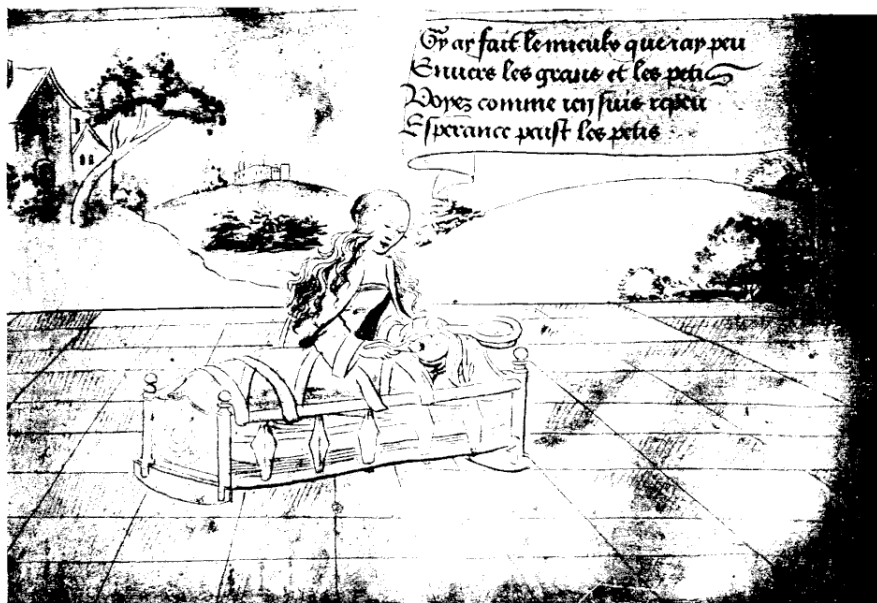 Gy ay fait le mieulx que iay peu
Enuers les grans et les petis
Voyez comme ien suis repeu
Esperance paist les petis